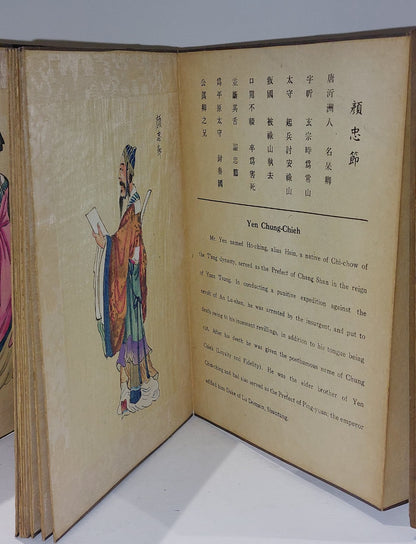 顏忠節
唐沂洲人 名杲卿
字昕 玄宗時爲常山
太守 起兵討安祿山
叛國 被祿山執去
口罵不輟 卒爲害死
斷其舌 諡忠
爲平原太守 封魯國
公眞卿之兄
Yen Chung-Chieh
Mr. Yen named Ho-ching, alias Hsin, a native of Chi-chow of
the Tang dynasty, served as the Prefect of Chang Shan in the reign
of Yuan Tsung. In conducting a punitive expedition against the
revolt of An Lu-shen, he was arrested by the insurgent, and put to
death owing to his incessant revilings, in addition to his tongue being
cut. After his death he was given the posthumous name of Chung
Chieh (Loyalty and Fidelity). He was the elder brother of Yen
Chin-ching and had also served as the Prefect of Ping-yuan; the emperor
edified him Duke of Lu Domain, Shantung.